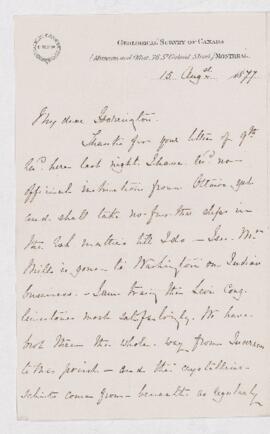 GEOLOGICAL SURVEY OF CANADA
(Museum and Office, 76 St Gabriel Street,) MONTREAL.
15 Augst. 1877.
My dear Harrington.
Thanks for your letter of 9th
recd here last night. I have recd no
official instructions from Ottawa yet
and shall take no further steps in
the matter till I do —
Mills is gone to Washington on Indian
business. — I am tracing the Levis
limestones most satisfactorily. We have
the whole way from
to this point — and the crystalline
schists come from beneath as regularly